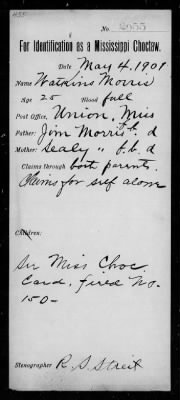 No. 2955
For Identification as a Mississippi Choctaw.
Date May 4, 1901
Name Watkins Morris
Age 25 Blood full
Post Office, Union, Miss
Father: Jim Morris f.b. d
Mother: Sealy " f.b. d
Claims through both parents.
Claims for self alone
Children:
See Miss Choc
Card, field No.
150-
Stenographer R. S. Streit